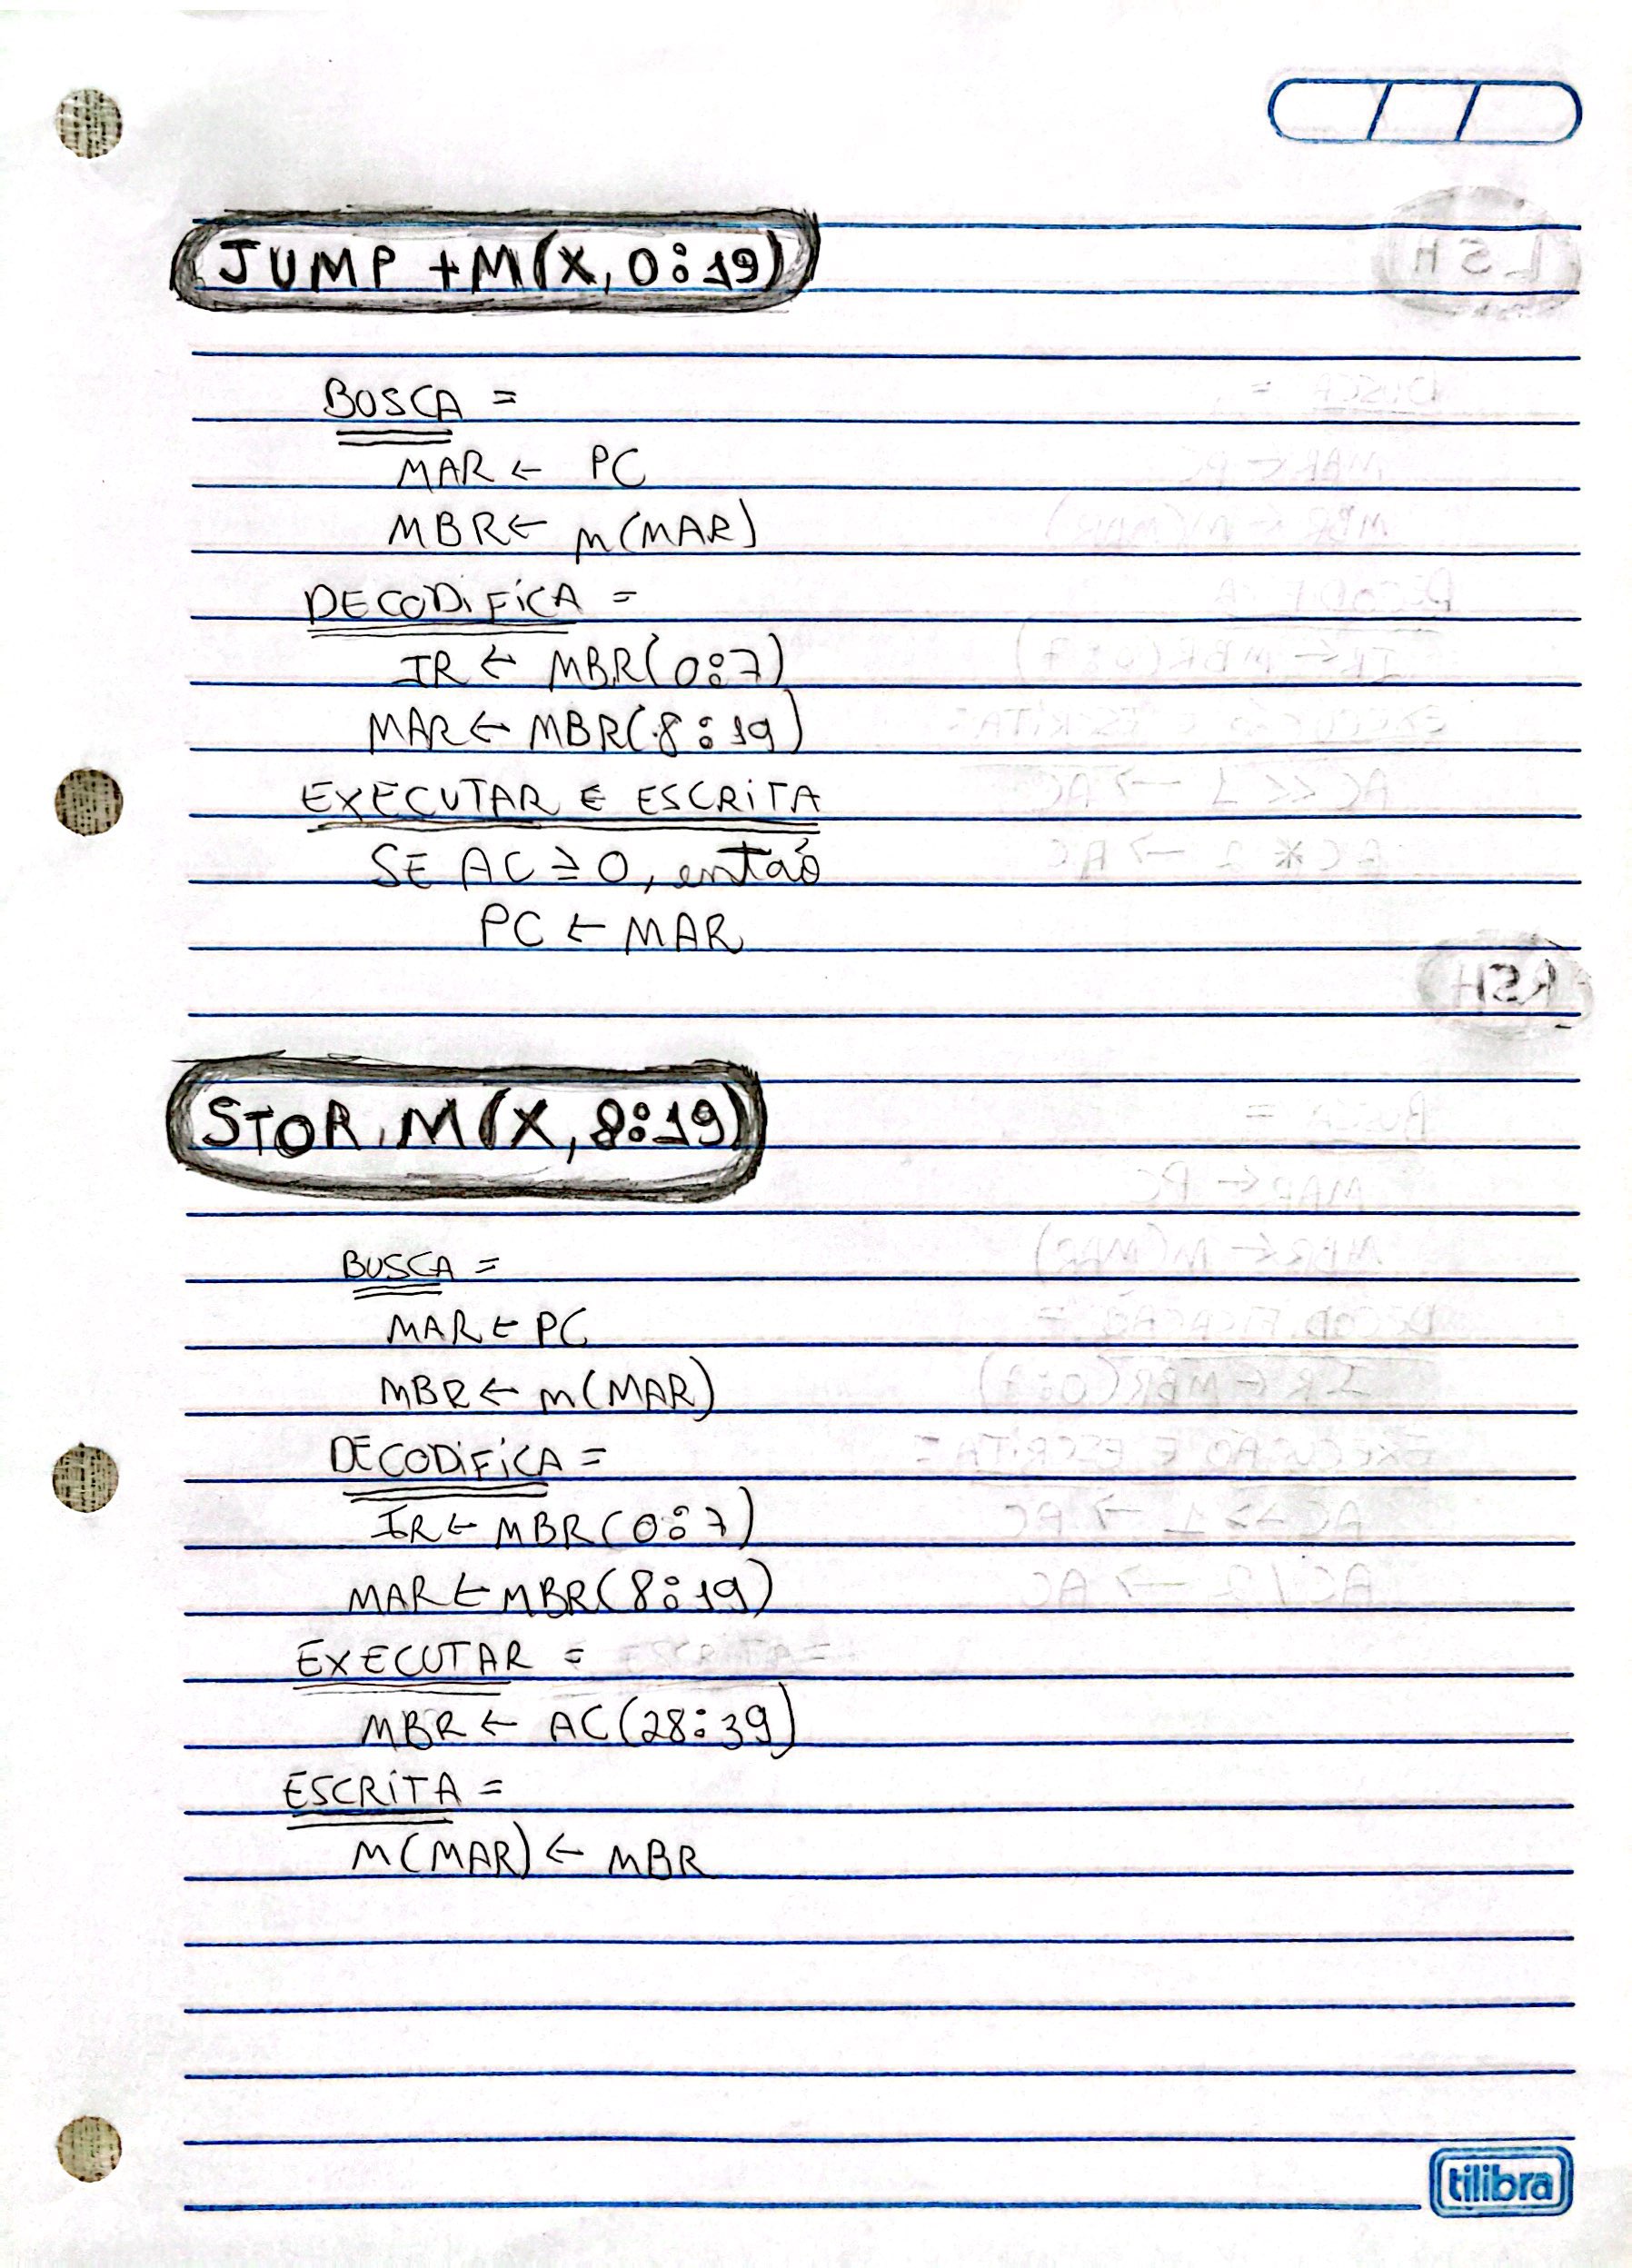 JUMP +M(X, 0:19)
BUSCA =
MAR ← PC
MBR ← M(MAR)
DECODIFICA =
IR ← MBR(0:7)
MAR ← MBR(8:19)
EXECUTAR E ESCRITA
SE AC ≥ 0, então
PC ← MAR
STOR M(X, 8:19)
BUSCA =
MAR ← PC
MBR ← M(MAR)
DECODIFICA =
IR ← MBR(0:7)
MAR ← MBR(8:19)
EXECUTAR =
MBR ← AC(28:39)
ESCRITA =
M(MAR) ← MBR
tilibra